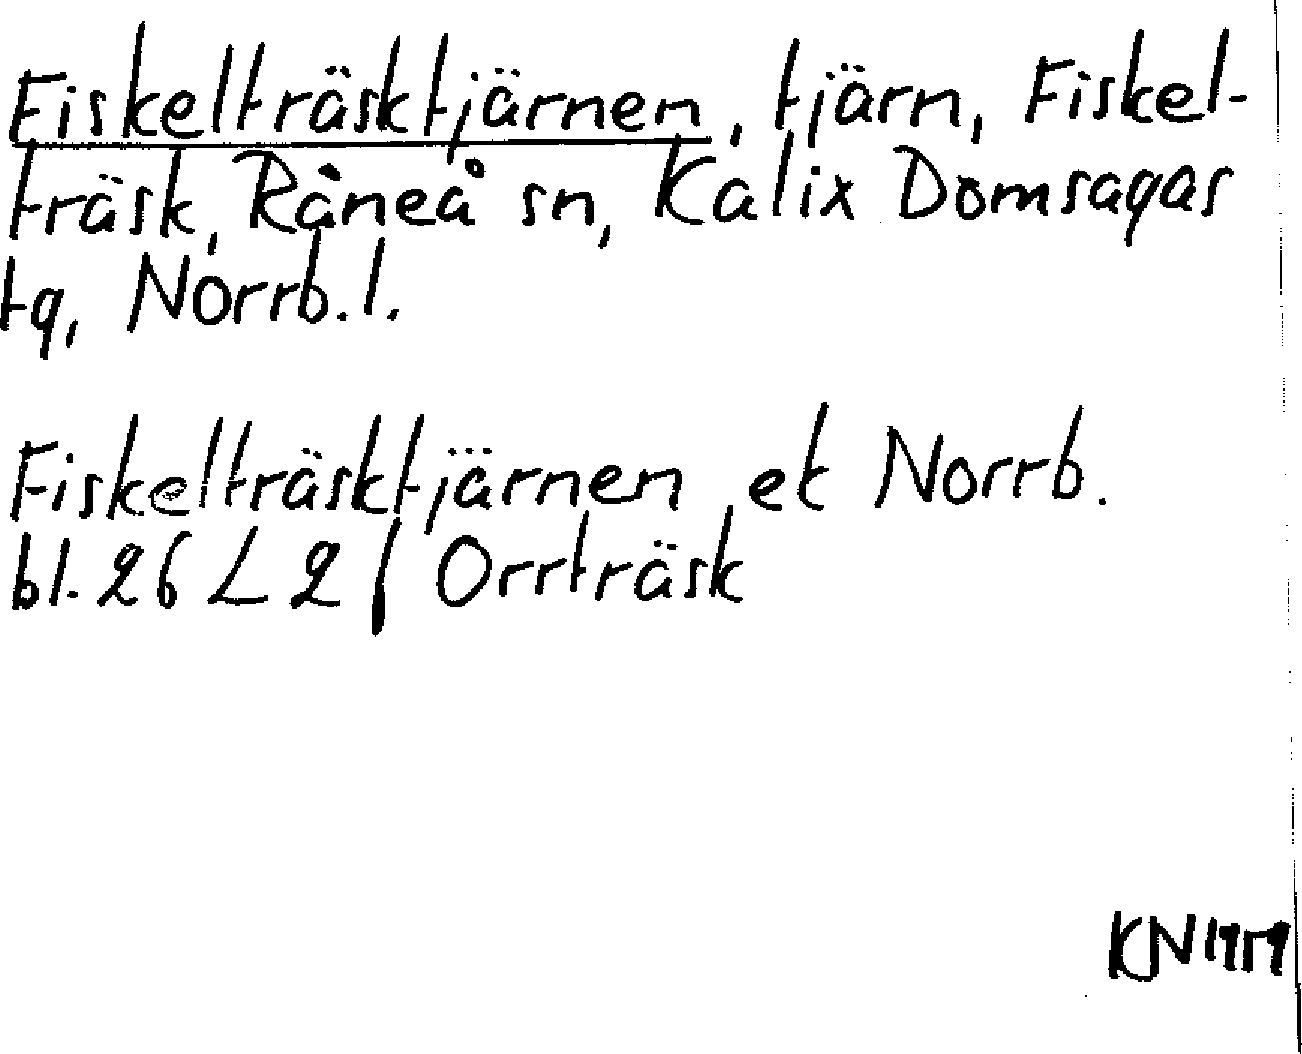 Fiskelträsktjärnen, tjärn, Fiskel-
träsk, Råneå sn, Kalix Domsagas
tg, Norrb. l.
Fiskelträsktjärnen ek Norrb.
bl. 26 L 2 f Orrträsk